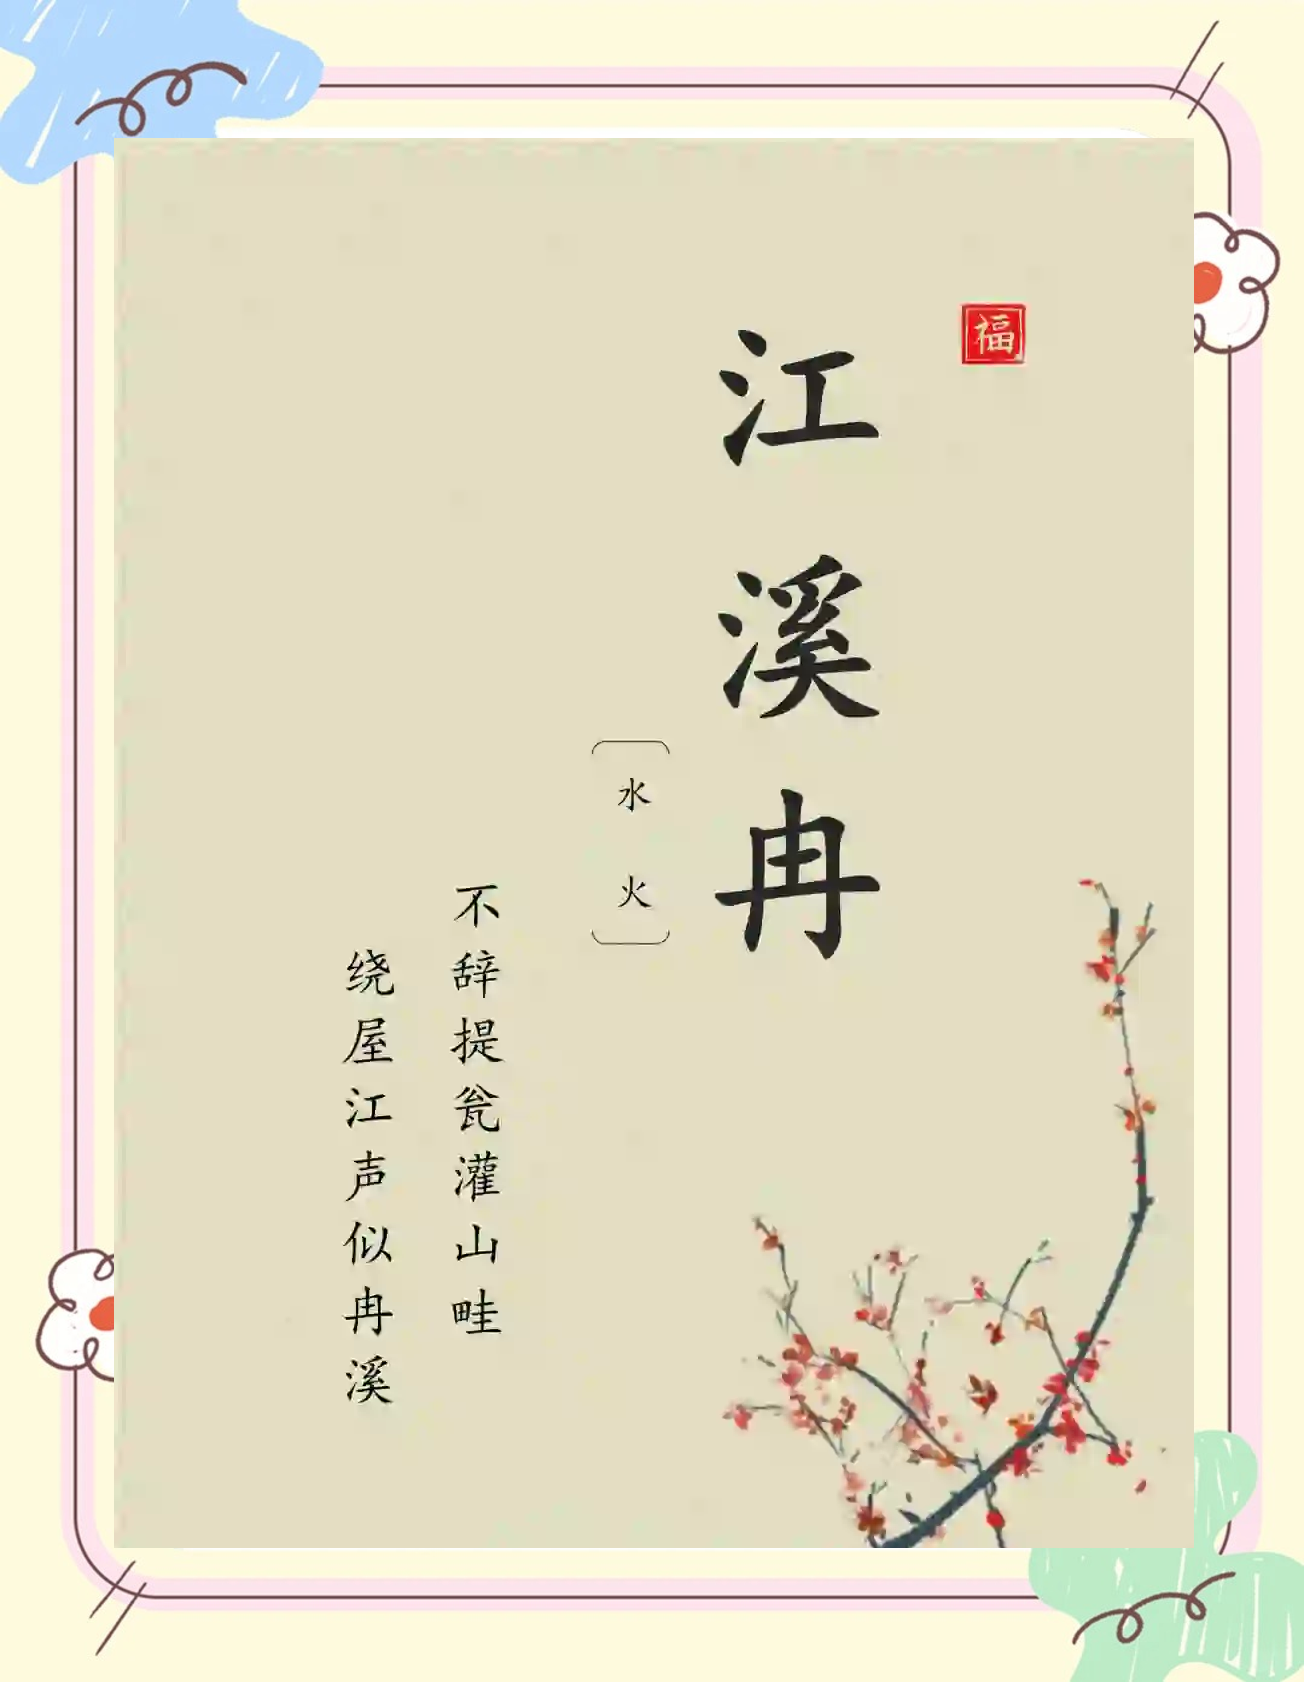 福
江溪冉
水火
不辞提瓮灌山畦
绕屋江声似冉溪